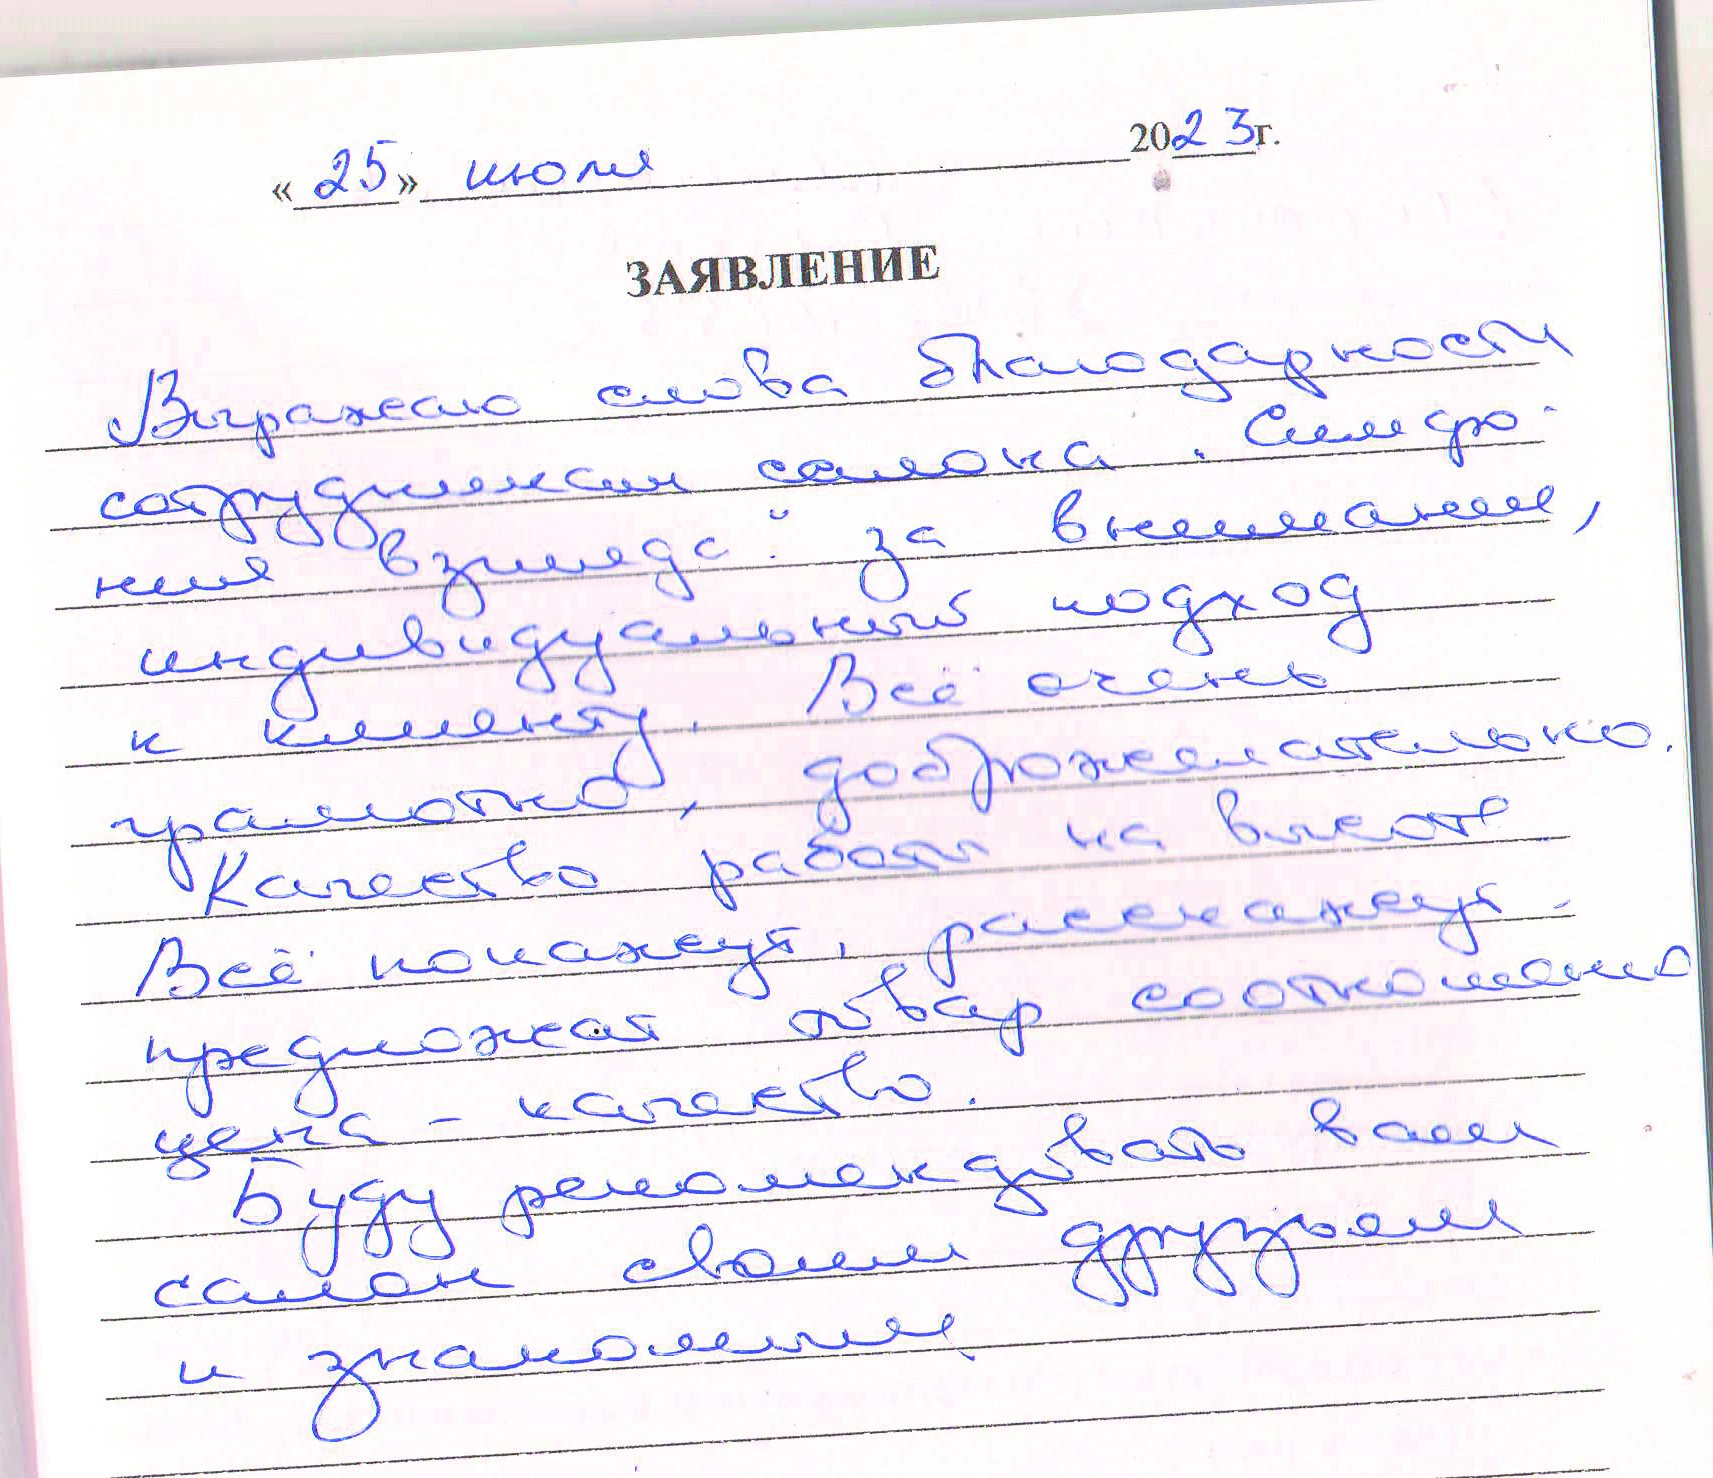 «25» июля 2023г.
ЗАЯВЛЕНИЕ
Выражаю слова благодарности
сотрудникам салона "Симфо-
ния взгляда" за внимание,
индивидуальный подход
к клиенту. Всё очень
грамотно, доброжелательно.
Качество работы на высоте
Всё покажут, расскажут.
предложат товар соотношено
цена - качество.
Буду рекомендовать ваш
салон своим друзьям
и знакомым